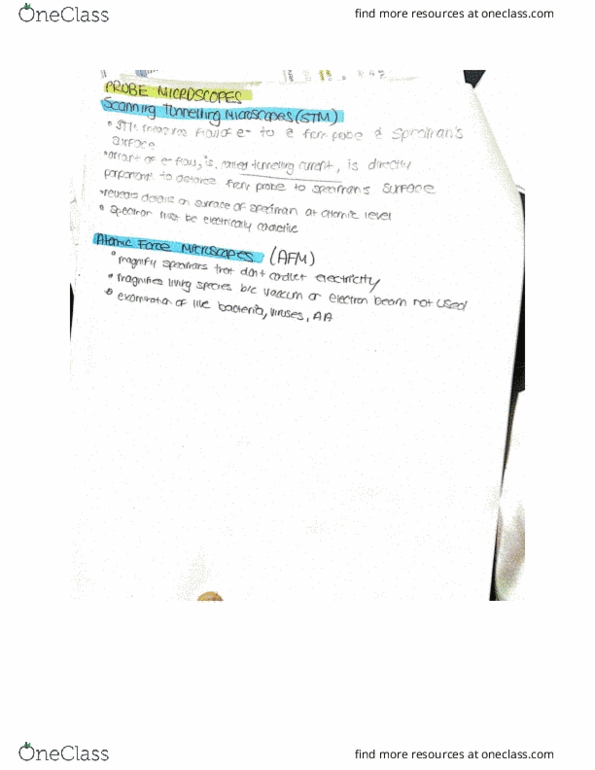 OneClass
find more resources at oneclass.com
PROBE MICROSCOPES
Scanning Tunnelling Microscopes (STM)
• STM measures flow of e- to & from probe & specimen's
surface
• amount of e- flow, is, called tunnelling current, is directly
proportional to distance from probe to specimen's surface
• reveals details on surface of specimen at atomic level
• specimen must be electrically conductive
Atomic Force Microscopes (AFM)
• magnify specimens that don't conduct electricity
• magnifies living species b/c vaccum or electron beam not used
• examination of live bacteria, viruses, AA
OneClass
find more resources at oneclass.com